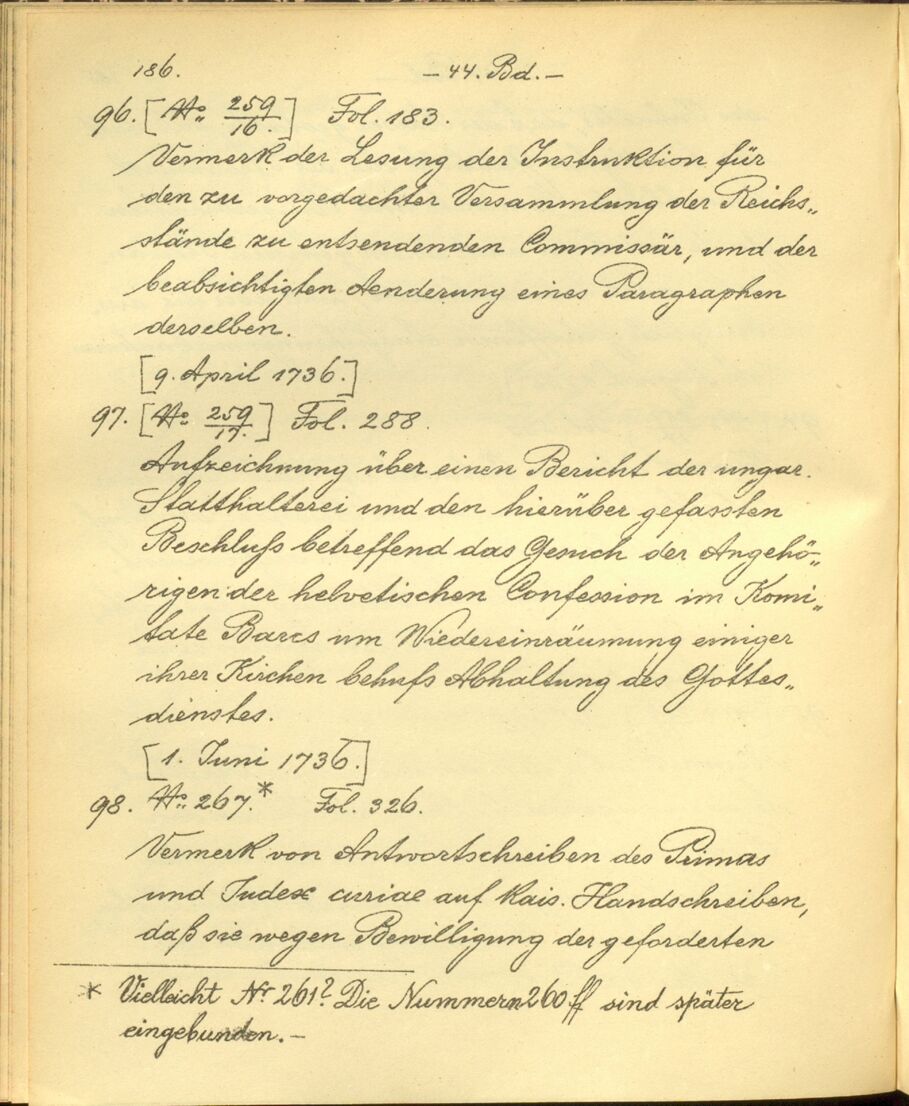 186. – 44. Bd. –
96. [No. 259/16.] Fol. 183.
Vermerk der Lesung der Instruktion für
den zu vorgedachter Versammlung der Reichs„
stände zu entsendenden Commissär, und der
beabsichtigten Aenderung eines Paragraphen
derselben.
[9. April 1736.]
97. [No. 259/17.] Fol. 288.
Aufzeichnung über einen Bericht der ungar.
Statthalterei und den hierüber gefassten
Beschluß betreffend das Gesuch der Angehö„
rigen der helvetischen Confession im Komi„
tate Barcs um Wiedereinräumung einiger
ihrer Kirchen behufs Abhaltung des Gottes„
dienstes.
[1. Juni 1736.]
98. No. 267.* Fol. 326.
Vermerk von Antwortschreiben des Primas
und Judex curiae auf kais. Handschreiben,
daß sie wegen Bewilligung der geforderten
* Vielleicht Nr 261? Die Nummern 260 ff sind später
eingebunden. –